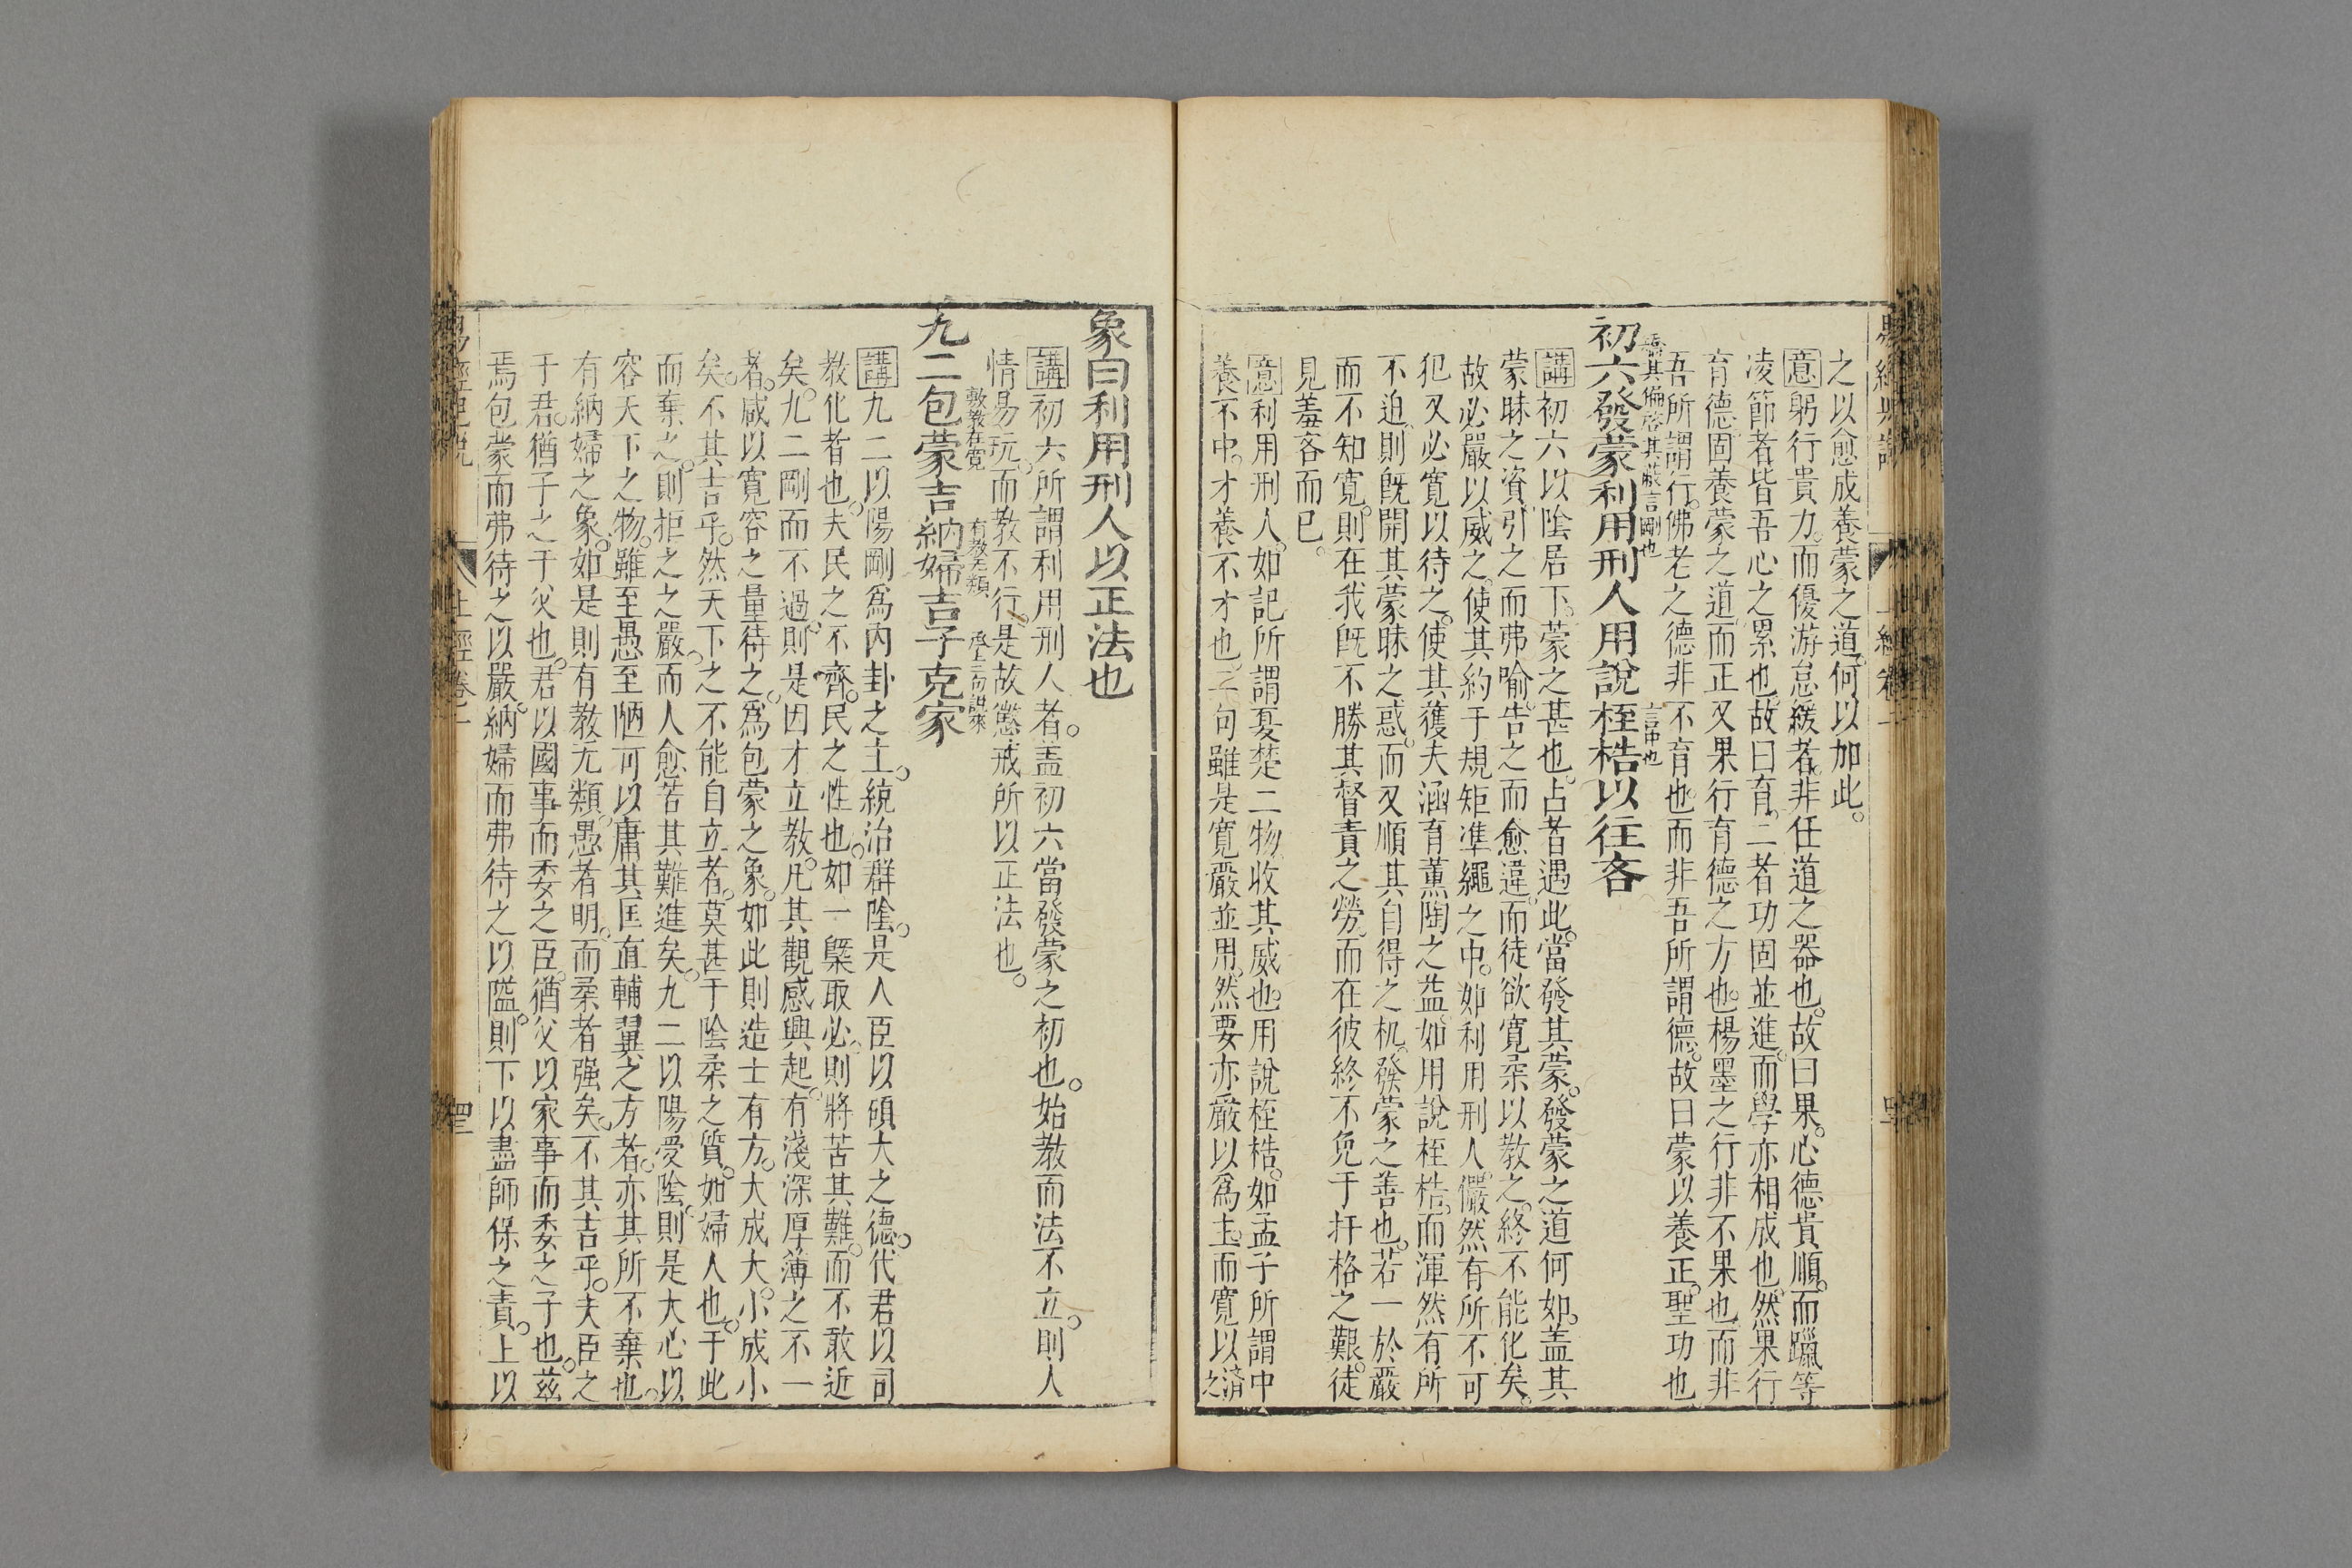 之以愈成養蒙之道。何以加此。
意躬行貴力。而優游怠緩者。非任道之器也。故曰果。心德貴順。而躐等
凌節者。皆吾心之累也。故曰育。二者功固並進。而學亦相成也。然果行
育德。固養蒙之道。而正又果行育德之方也。楊墨之行非不果也。而非
吾所謂行。佛老之德非不育也。而非吾所謂德。故曰蒙以養正。聖功也
其偏啓其蔽言剛也 言中也
初六發蒙利用刑人用說桎梏以往吝
講初六以陰居下。蒙之甚也。占者遇此。當發其蒙。發蒙之道何如。盖其
蒙昧之資。引之而弗喻。告之而愈違。而徒欲寬柔以教之。終不能化矣。
故必嚴以威之。使其約于規矩準繩之中。如利用刑人。儼然有所不可
犯。又必寬以待之。使其獲夫涵育薰陶之益。如用說桎梏。而渾然有所
不迫。則旣開其蒙昧之惑。而又順其自得之机。發蒙之善也。若一於嚴
而不知寬。則在我旣不勝其督責之勞。而在彼終不免于扞格之艱。徒
見羞吝而已。
意利用刑人。如記所謂夏楚二物。收其威也。用說桎梏。如孟子所謂中
養不中。才養不才也。二句雖是寬嚴並用。然要亦嚴以爲主。而寬以濟之
象曰利用刑人以正法也
講初六所謂利用刑人者。盖初六當發蒙之初也。始教而法不立。則人
情易玩。而教不行。是故懲戒所以正法也。
敷教在寬 有教无類 承上二句說來
九二包蒙吉納婦吉子克家
講九二以陽剛爲內卦之主。統治群陰。是人臣以碩大之德。代君以司
教化者也。夫民之不齊。民之性也。如一槩取必。則將苦其難。而不敢近
矣。九二剛而不過。則是因才立教。凡其觀感興起。有淺深厚薄之不一
者。咸以寬容之量待之。爲包蒙之象。如此則造士有方。大成大。小成小
矣。不其吉乎。然天下之不能自立者。莫甚于陰柔之質。如婦人也。于此
而棄之。則拒之之嚴。而人愈苦其難進矣。九二以陽受陰。則是大心以
容天下之物。雖至愚至陋。可以庸其匡直輔翼之方者。亦其所不棄也。
有納婦之象。如是則有教无類。愚者明。而柔者强矣。不其吉乎。夫臣之
于君。猶子之于父也。君以國事而委之臣。猶父以家事而委之子也。茲
焉包蒙而弗待之以嚴。納婦而弗待之以隘。則下以盡師保之責。上以